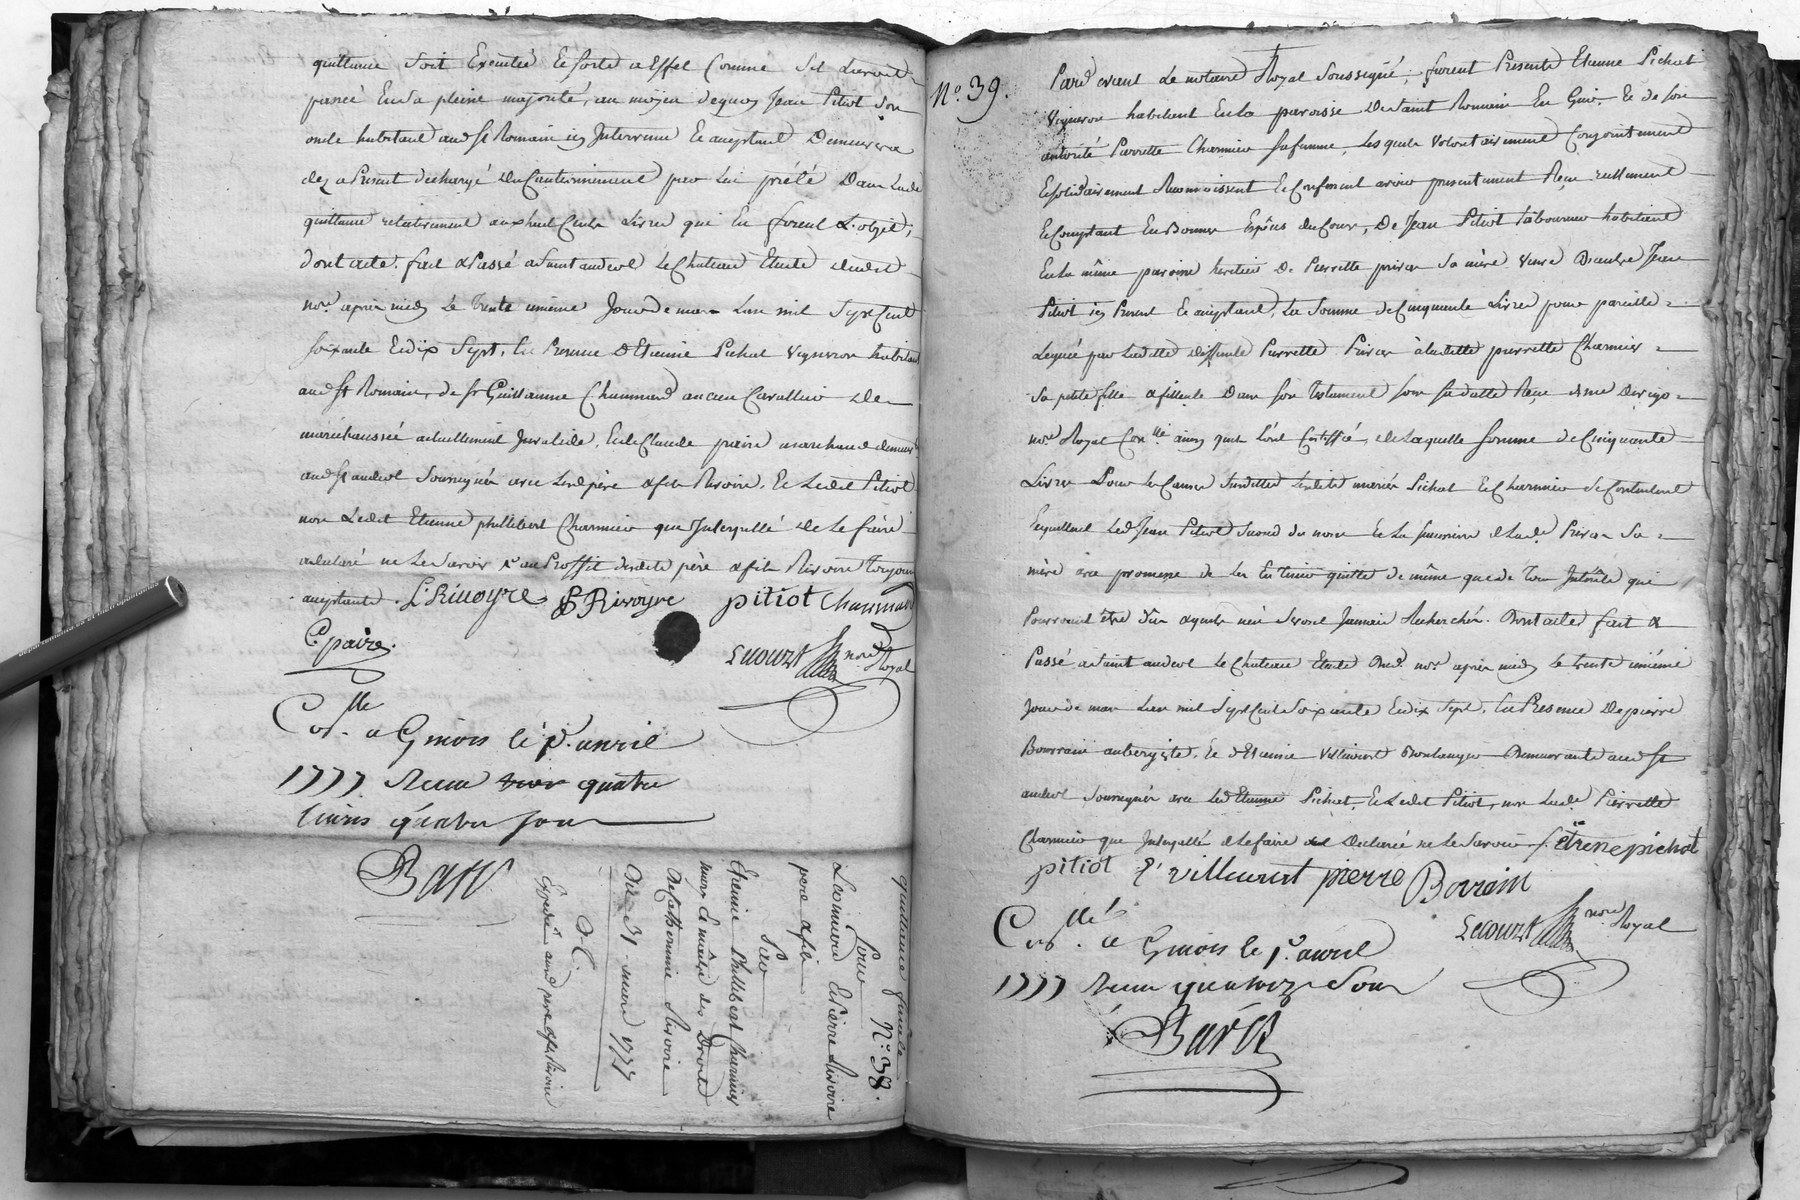 quittance soit Exécutée Et sorte a Effet Comme Sil Lavoit
passée En sa pleine majorité, au moyen dequoy Jean Pitiot son
oncle habitant aud St Romain icy Intervenu Et acceptant Demeurera
dez a Present déchargé du Cautionnement par Lui prété Dans Lade
quittance relativement aux huit Cents Livres qui En furent L'objet,
dont acte. fait & Passé a Saint andeol Le Chateau Etude dudit
nore. après midy Le Trente unieme Jour de mars Lan mil Sept Cent
soixante Et dix Sept, En Presence d'Etienne Pichat vigneron habitant
aud St Romain, de Sr Guillaume Chaumard ancien Cavallier De
maréchaussée actuellement Invalide, Et de Claude paire marchand demeurt
aud St andeol Soussignés avec Lesd père & fils Rivoire, Et Ledit Pitiot
non Ledit Etienne phillibert Charmier que Interpellé de Le faire
a déclaré ne Le Savoir & au Proffit desdits père & fils Rivoire Toujours
acceptants. L. Rivoyre P Rivoyre pitiot Chaumard
C. paire.
Lecourt nore Royal
Collé a Givors le 1er. avril
1777. Recu quatre
livres quatre sous
Barv
quittance finale
N.º 38.
Pour
Leonnard Et Pierre Rivoire
pere & fils
Par
Etienne Phillibert Charmier
mary Et maître des Droits
De Catherine Rivoire
Du 31 mars 1777
Expediée aux pere & fils Rivoire
N.º 39.
Pard evant Le notaire Royal Soussigné, furent Presents Etienne Pichat
vigneron habitant En La paroisse De Saint Romain En Gier, Et de Son
autorité Pierrette Charmier Sa femme, Lesquels volontairement Conjointement
Et solidairement Reconnoissent Et Confessent avoir presentement Reçu réellement
Et Comptant En Bonnes Espèces du Cours, De Jean Pitiot laboureur habitant
En La même paroisse heritier De Pierrette Sa mère veuve D'autre Jean
Pitiot icy Present Et acceptant, La Somme de Cinquante Livres pour pareille
Leguée par Laditte deffunte Pierrette à laditte pierrette Charmier
Sa petite fille & filleule Dans Son Testament Sous Sa datte Reçu
nore Royal ainsy quil L'ont Certiffié, de Laquelle Somme de Cinquante
Livres Pour Les Causes Susdittes Lesdits mariés Pichat Et Charmier Se Contentent
En quittent Led Jean Pitiot Second du nom Et La Succession de Lade. Sa
mère avec promesse de Les En Tenir quitte de même que de Tous Intérêts qui
Pourroient être dûs & quils n'en Seront Jamais Recherchés. Dont acte fait &
Passé a Saint andeol Le Chateau Etude Dud. nore après midy Le trente unieme
Jour de mars Lan mil Sept Cent Soixante Et dix Sept, En Presence De pierre
Bourrain aubergiste, Et d'Etienne Villeurt Boulanger Demeurants aud St
andeol Soussignés avec Led Etienne Pichat, Et Ledit Pitiot, non Lade. Pierrette
Charmier que Interpellée de Le faire a Declaré ne Le Savoir /. étiene pichat
pitiot E villeurt pierre Borrain
Lecourt nore Royal
Collé a Givors le 1er. avril
1777 Recu quatorze Sous
Barv